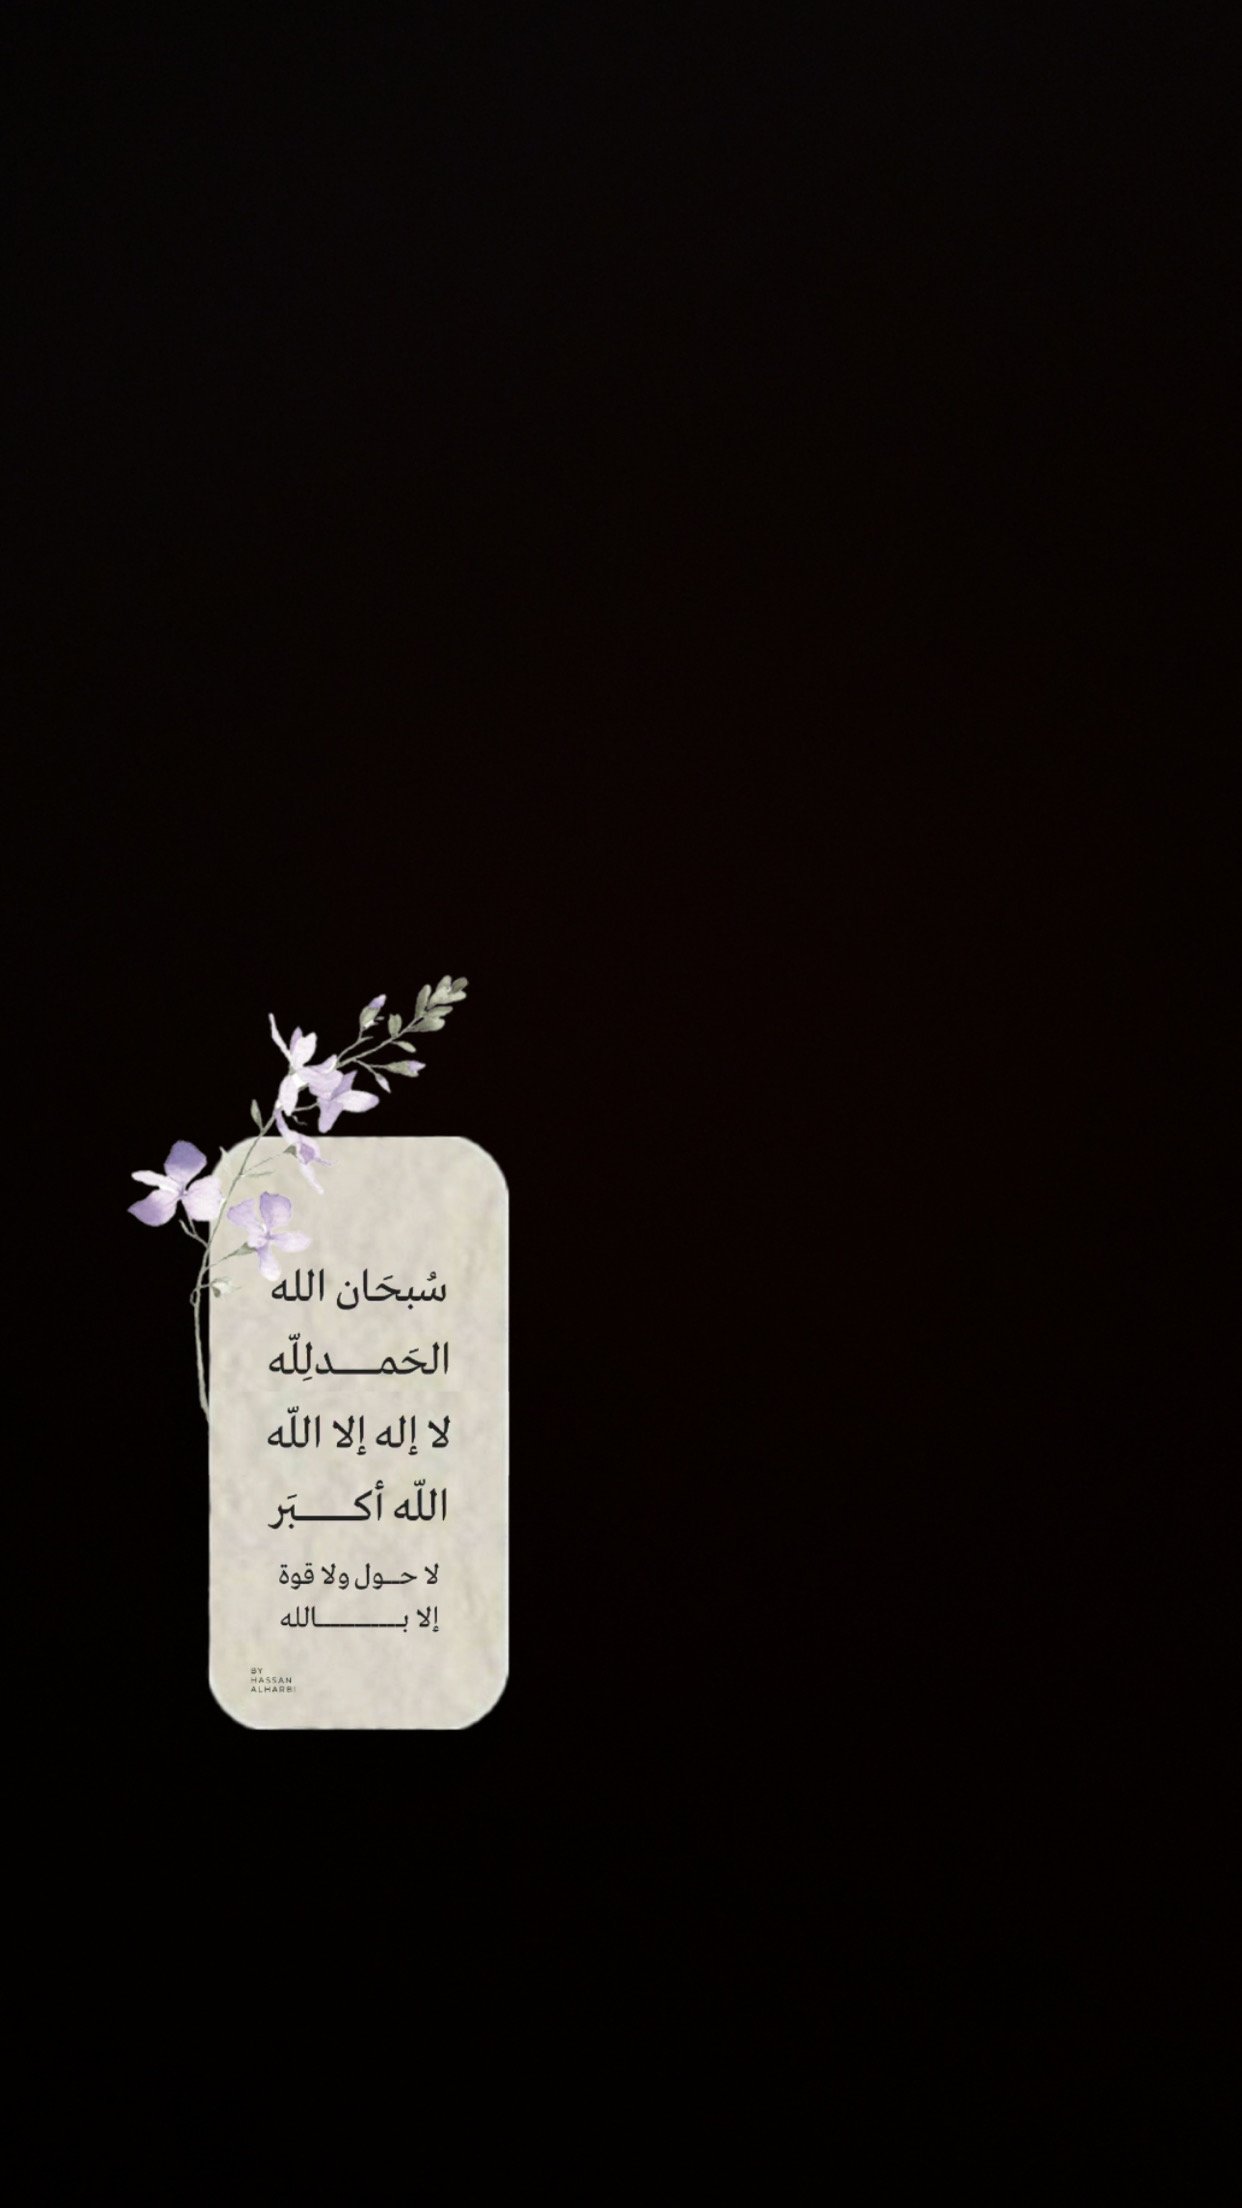 سُبحَان الله
الحَمـــدلِلّه
لا إله إلا اللّه
اللّه أكـــبَر
لا حــول ولا قوة
إلا بــــــالله
BY
HASSAN
ALHARBI